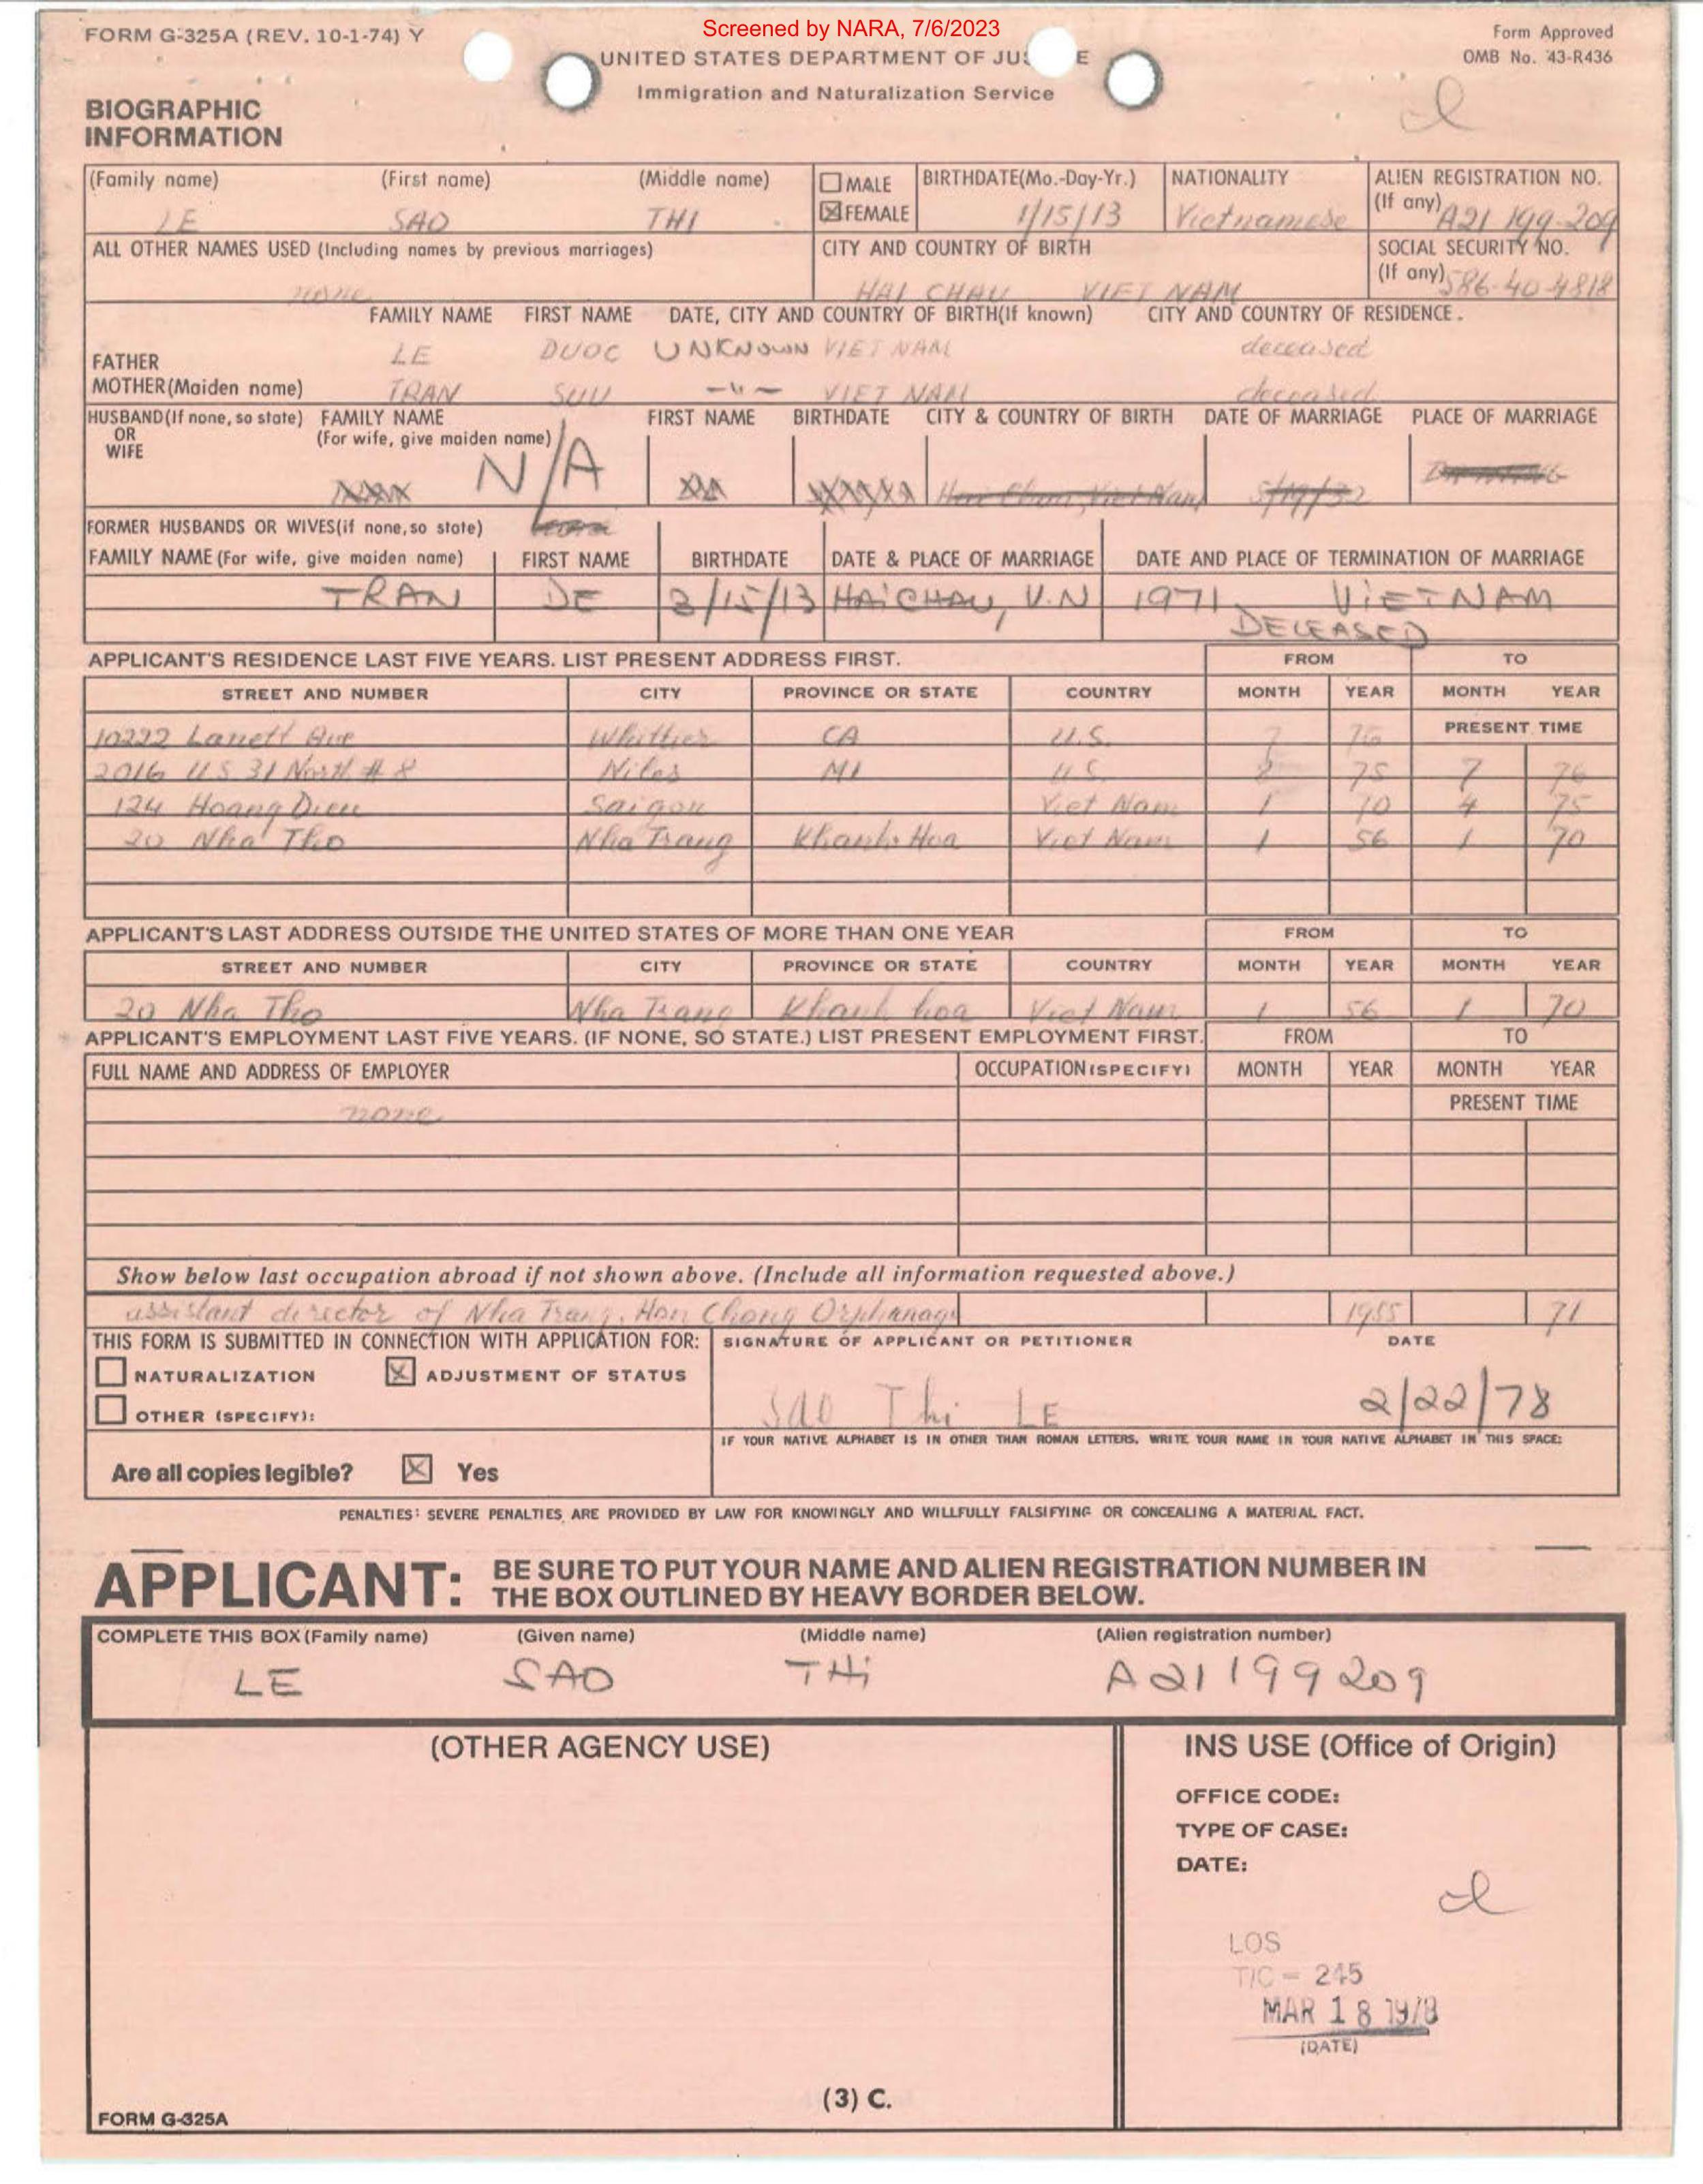 Screened by NARA, 7/6/2023
FORM G-325A (REV. 10-1-74) Y
Form Approved
OMB No. 43-R436
UNITED STATES DEPARTMENT OF JUS E
Immigration and Naturalization Service
BIOGRAPHIC
INFORMATION
(Family name) (First name) (Middle name) MALE FEMALE BIRTHDATE(Mo.-Day-Yr.) NATIONALITY ALIEN REGISTRATION NO. (If any)
LE SAO THI 1/15/13 Vietnamese A21 199-209
ALL OTHER NAMES USED (Including names by previous marriages) CITY AND COUNTRY OF BIRTH SOCIAL SECURITY NO. (If any)
none HAI CHAU VIET NAM 586-40-4818
FAMILY NAME FIRST NAME DATE, CITY AND COUNTRY OF BIRTH(If known) CITY AND COUNTRY OF RESIDENCE.
FATHER LE DUOC UNKNOWN VIET NAM deceased
MOTHER(Maiden name) TRAN SUU -"- VIET NAM deceased
HUSBAND(If none, so state) OR WIFE FAMILY NAME (For wife, give maiden name) FIRST NAME BIRTHDATE CITY & COUNTRY OF BIRTH DATE OF MARRIAGE PLACE OF MARRIAGE
N/A Hai Chau, Viet Nam
FORMER HUSBANDS OR WIVES(if none, so state)
FAMILY NAME (For wife, give maiden name) FIRST NAME BIRTHDATE DATE & PLACE OF MARRIAGE DATE AND PLACE OF TERMINATION OF MARRIAGE
TRAN DE 3/15/13 HAiCHAU, V.N 1971 ViETNAM
DECEASED
APPLICANT'S RESIDENCE LAST FIVE YEARS. LIST PRESENT ADDRESS FIRST. FROM TO
STREET AND NUMBER CITY PROVINCE OR STATE COUNTRY MONTH YEAR MONTH YEAR
10222 Lanett Ave Whittier CA U.S. 7 76 PRESENT TIME
2016 US 31 North # 8 Niles MI U.S. 75 7 76
124 Hoang Dieu Saigon Viet Nam 1 70 4 75
20 Nha Tho Nha Trang Khanh Hoa Viet Nam 1 56 1 70
APPLICANT'S LAST ADDRESS OUTSIDE THE UNITED STATES OF MORE THAN ONE YEAR FROM TO
STREET AND NUMBER CITY PROVINCE OR STATE COUNTRY MONTH YEAR MONTH YEAR
20 Nha Tho Nha Trang Khanh hoa Viet Nam 1 56 1 70
APPLICANT'S EMPLOYMENT LAST FIVE YEARS. (IF NONE, SO STATE.) LIST PRESENT EMPLOYMENT FIRST. FROM TO
FULL NAME AND ADDRESS OF EMPLOYER OCCUPATION(SPECIFY) MONTH YEAR MONTH YEAR
none PRESENT TIME
Show below last occupation abroad if not shown above. (Include all information requested above.)
assistant director of Nha Trang, Hon Chong Orphanage 1955 71
THIS FORM IS SUBMITTED IN CONNECTION WITH APPLICATION FOR: SIGNATURE OF APPLICANT OR PETITIONER DATE
NATURALIZATION ADJUSTMENT OF STATUS
OTHER (SPECIFY):
Sao Thi LE 2/22/78
IF YOUR NATIVE ALPHABET IS IN OTHER THAN ROMAN LETTERS, WRITE YOUR NAME IN YOUR NATIVE ALPHABET IN THIS SPACE:
Are all copies legible? Yes
PENALTIES: SEVERE PENALTIES ARE PROVIDED BY LAW FOR KNOWINGLY AND WILLFULLY FALSIFYING OR CONCEALING A MATERIAL FACT.
APPLICANT: BE SURE TO PUT YOUR NAME AND ALIEN REGISTRATION NUMBER IN
THE BOX OUTLINED BY HEAVY BORDER BELOW.
COMPLETE THIS BOX (Family name) (Given name) (Middle name) (Alien registration number)
LE SAO THi A21199209
(OTHER AGENCY USE) INS USE (Office of Origin)
OFFICE CODE:
TYPE OF CASE:
DATE:
LOS
T/C = 245
MAR 18 1978
(DATE)
(3) C.
FORM G-325A